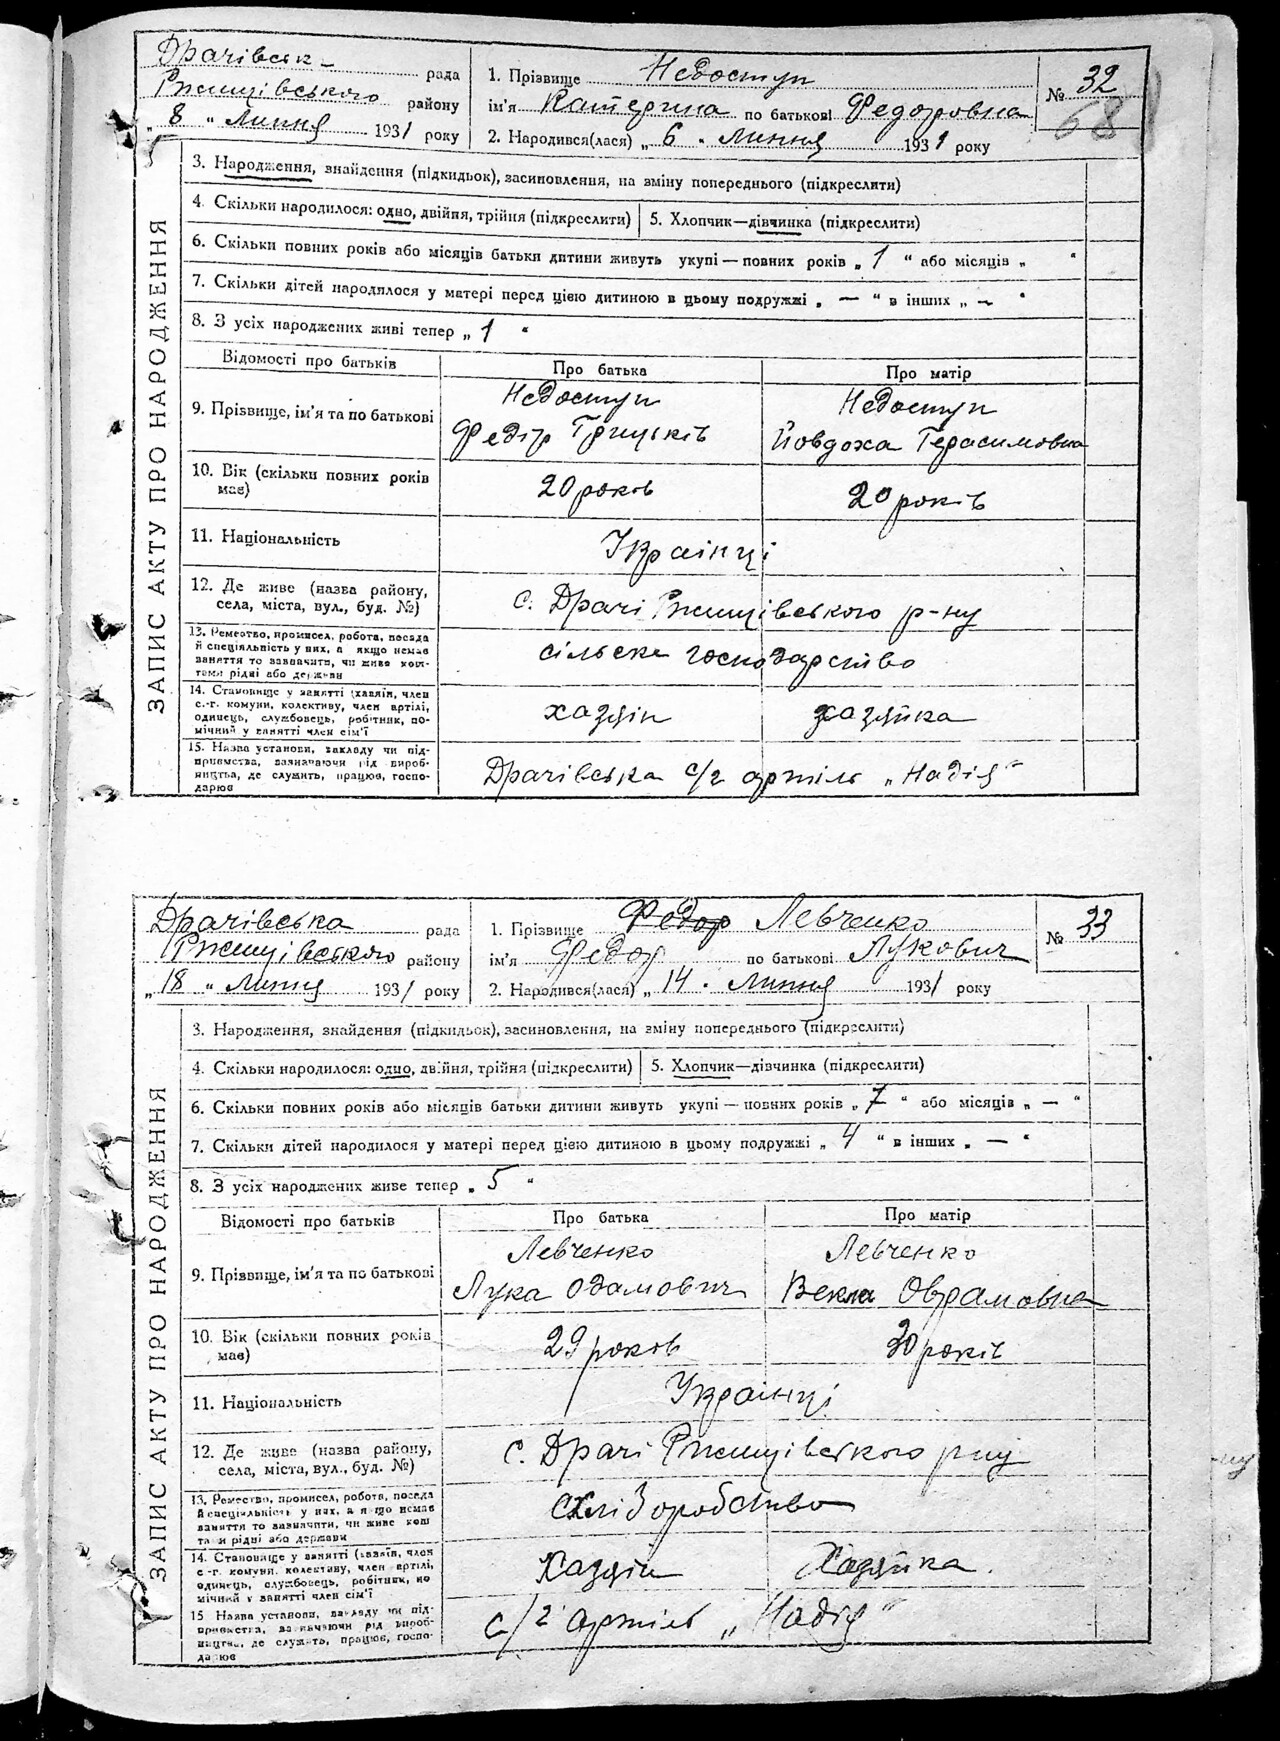 Драчівськ- рада
Ржищівського району
„ 8 “ Липня 1931 року
1. Прізвище Недоступ
ім'я Катерина по батькові Федоровна
2. Народився(лася) „ 6 „ Липня 1931 року
№ 32
68
ЗАПИС АКТУ ПРО НАРОДЖЕННЯ
3. Народження, знайдення (підкидьок), засиновлення, на зміну попереднього (підкреслити)
4. Скільки народилося: одно, двійня, трійня (підкреслити) 5. Хлопчик—дівчинка (підкреслити)
6. Скільки повних років або місяців батьки дитини живуть укупі — повних років „ 1 “ або місяців „ “
7. Скільки дітей народилося у матері перед цією дитиною в цьому подружжі „ — “ в інших „ — “
8. З усіх народжених живі тепер „ 1 “
Відомості про батьків Про батька Про матір
9. Прізвище, ім'я та по батькові
Недоступ
Федір Грицьків
Недоступ
Йовдоха Герасимовна
10. Вік (скільки повних років
має)
20 років 20 років
11. Національність Українці
12. Де живе (назва району,
села, міста, вул., буд. №)
с. Драчі Ржищівського р-ну
13. Ремество, промисел, робота, посада
й спеціяльність у них, а якщо немає
заняття то зазначити, чи живе кош-
тами рідні або держави
сільське господарство
14. Становище у занятті (хазяїн, член
с.-г. комуни, колективу, член артілі,
одинець, службовець, робітник, по-
мічний у занятті член сім'ї
хазяїн хазяйка
15. Назва установи, закладу чи під-
приємства, зазначаючи рід вироб-
ництва, де служить, працює, госпо-
дарює
Драчівська с/г артіль „Надія“
Драчівська рада
Ржищівського району
„ 18 “ Липня 1931 року
1. Прізвище Федор Левченко
ім'я Федор по батькові Лукович
2. Народився(лася) „ 14 „ Липня 1931 року
№ 33
ЗАПИС АКТУ ПРО НАРОДЖЕННЯ
3. Народження, знайдення (підкидьок), засиновлення, на зміну попереднього (підкреслити)
4. Скільки народилося: одно, двійня, трійня (підкреслити) 5. Хлопчик—дівчинка (підкреслити)
6. Скільки повних років або місяців батьки дитини живуть укупі — повних років „ 7 “ або місяців „ — “
7. Скільки дітей народилося у матері перед цією дитиною в цьому подружжі „ 4 “ в інших „ — “
8. З усіх народжених живе тепер „ 5 “
Відомості про батьків Про батька Про матір
9. Прізвище, ім'я та по батькові
Левченко
Лука Одамович
Левченко
Векла Оврамовна
10. Вік (скільки повних років
має)
29 років 30 років
11. Національність Українці
12. Де живе (назва району,
села, міста, вул., буд. №)
с. Драчі Ржищівського рну
13. Ремество, промисел, робота, посада
й спеціяльність у них, а якщо немає
заняття то зазначити, чи живе кош
тами рідні або держави
14. Становище у занятті (хазяїн, член
с.-г. комуни, колективу, член артілі,
одинець, службовець, робітник, по
мічний у занятті член сім'ї
Хазяїн Хазяйка.
15 Назва установи, закладу чи під-
приємства, зазначаючи рід вироб-
ництва, де служить, працює, госпо-
дарює
с/г артіль „Надія“